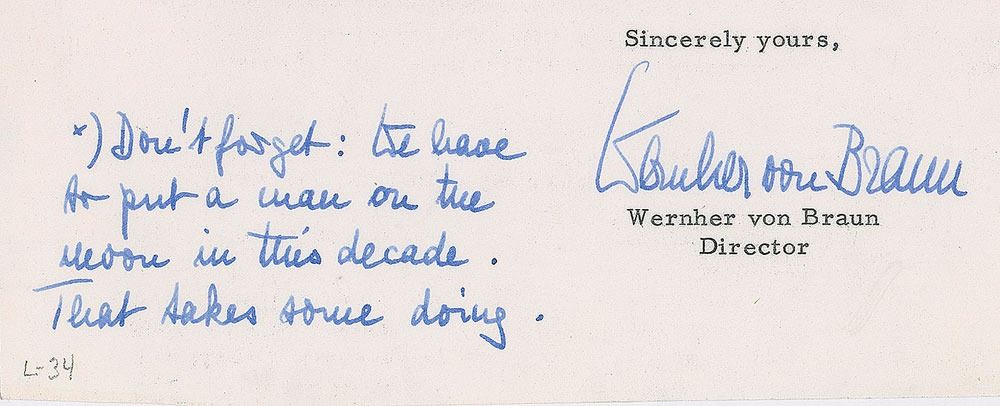 Sincerely yours,
Wernher von Braun
Wernher von Braun
Director
*) Don't forget: We have
to put a man on the
moon in this decade.
That takes some doing.
L-34